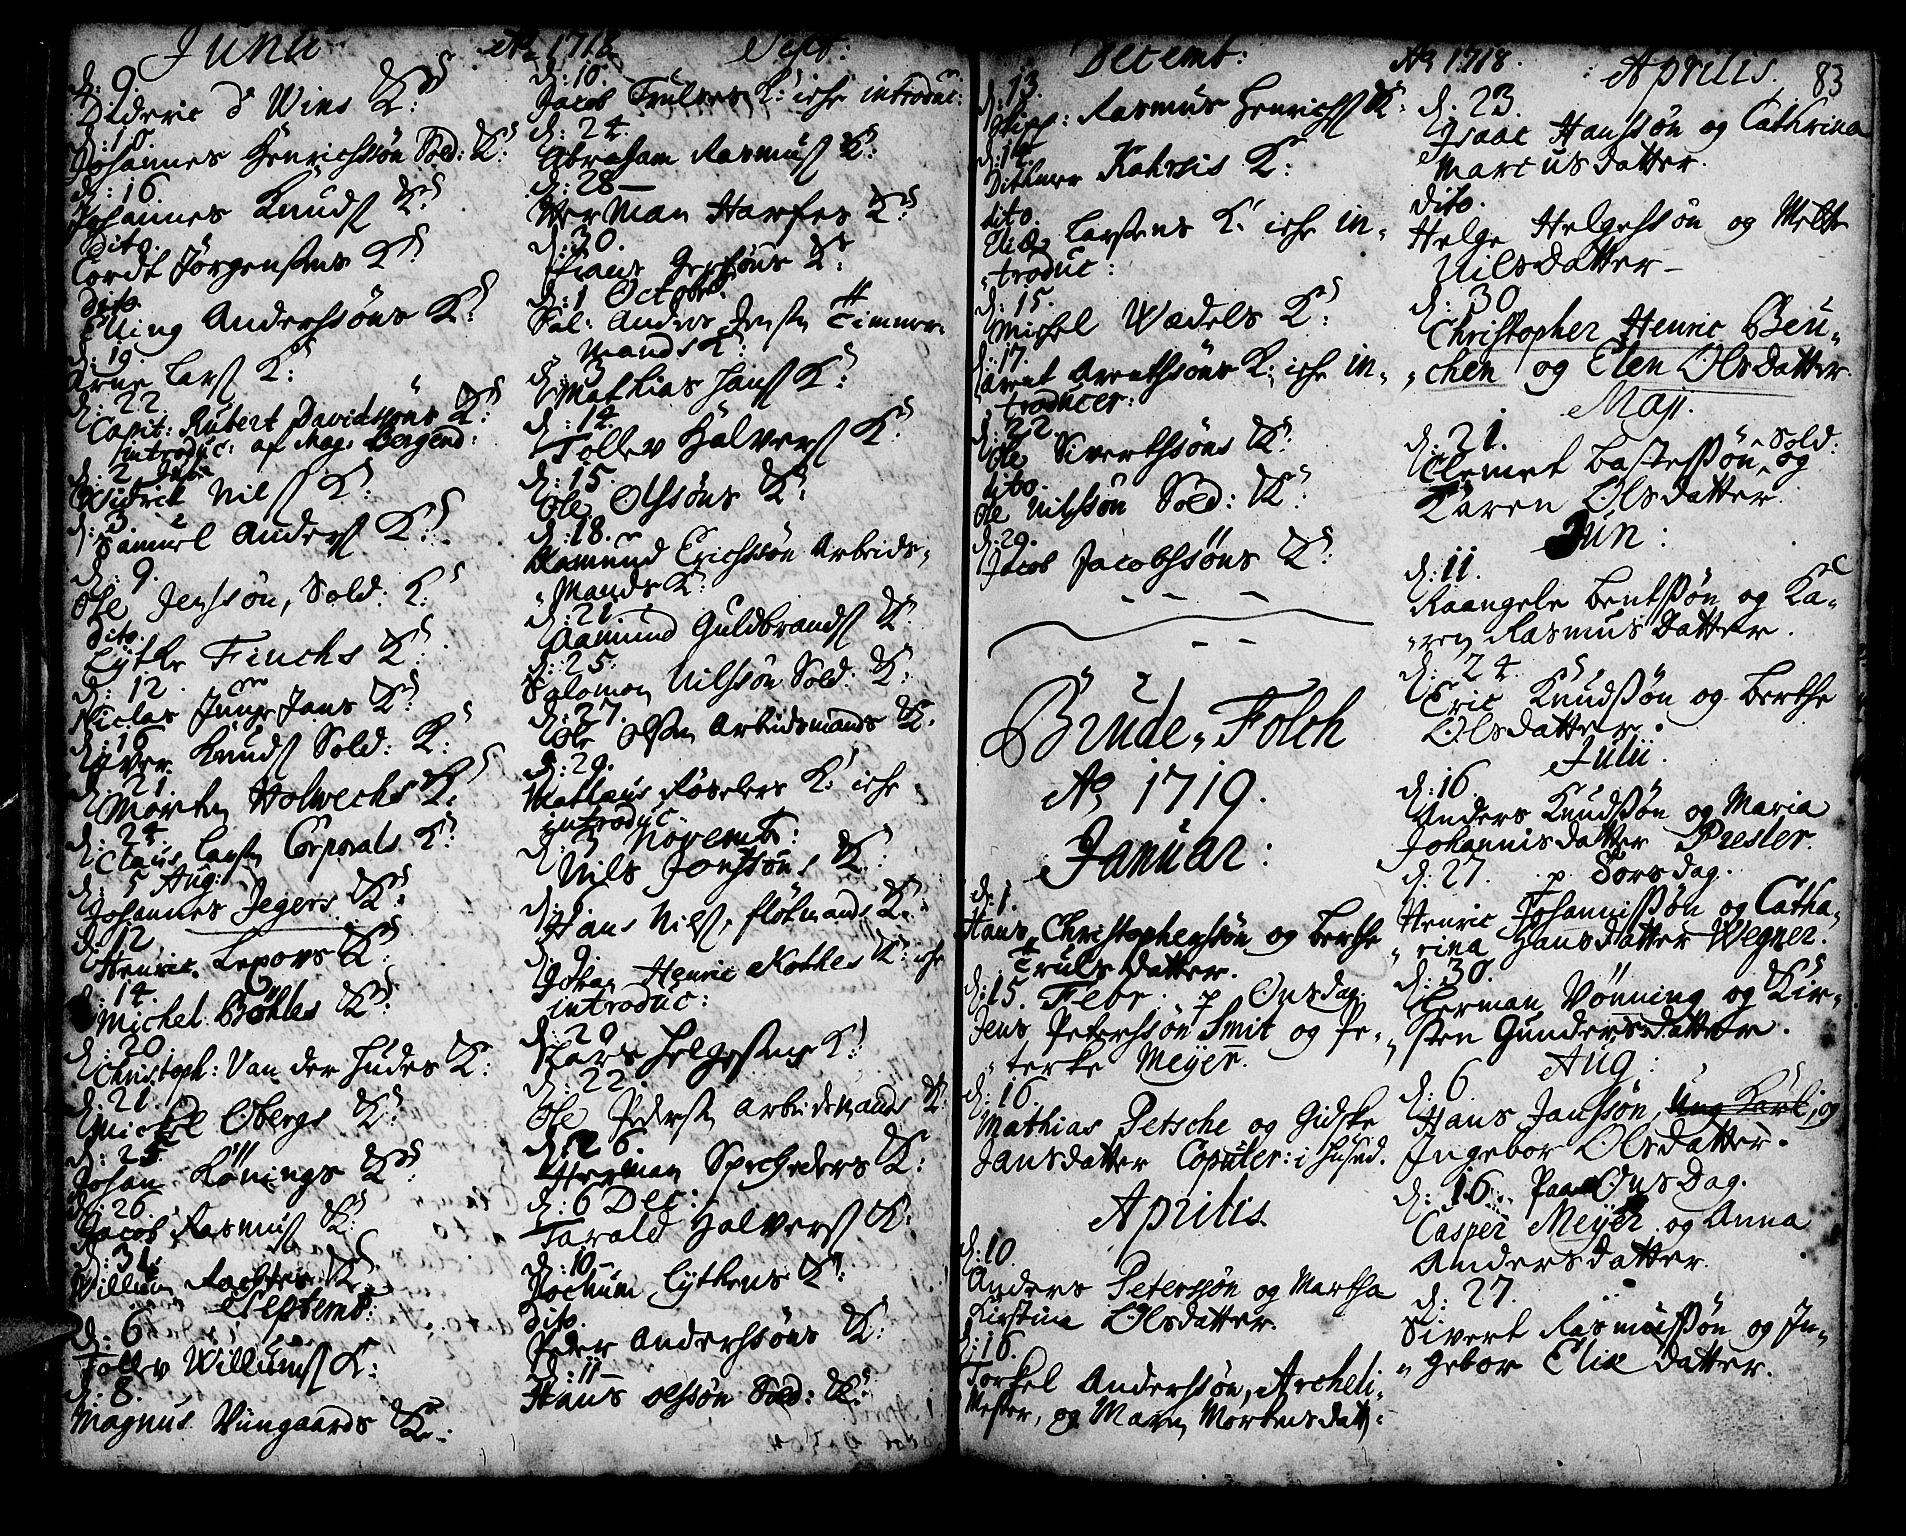 Junii
Ao 1718
d: 9.
Dideric d Wins K:
d: 10.
Johannes Henrichssøn Sold: K:
d: 16.
Johannes Knuds K:
dito.
Cordt Jørgensens K:
dito
Elling Anderssøns K:
d: 19
Arne Lars K:
d: 22.
Capit: Rubert Davidssøns K:
introduc: af Mag: Bergend:
d: 2 Julii
Nils K:
d: 3.
Samuel Anders K:
d: 9.
Ole Jenssøn, Sold: K:
dito.
Lytke Finchs K:
d: 12.
Niclas Junge Jans K:
d: 16
Iver Knuds Sold: K:
d: 21.
Morten Holwechs K:
d: 24
Claus Larsen Corporals K:
d: 5 Aug:
Johannes Jegers K:
d: 12
Henric Lepovs K:
d: 14.
Michel Böhles K:
d: 20.
Christoph: Van der Hudes K:
d: 21.
Michel Obergs K:
d: 25.
Johan Könings K:
d: 26.
Jacob Rasmus K:
d: 31.
Willum K:
Septemb:
d: 6
Tollev Willums K:
d: 8.
Magnus Vungaards K:
Sept:
d: 10.
Jacob Trulses K: iche introduc:
d: 24.
Abraham Rasmus K:
d: 28
Herman Harfes K:
d: 30.
Hans K:
d: 1 October.
Sal: Anders Jensen Timmer-
mands K:
d: 3
Mathias Hans K:
d: 14.
Tollev Halvers K:
d: 15.
Ole Olssøns K:
d: 18.
Aamund Erichssøn Arbeids-
mands K:
d: 21.
Aamund Guldbrands K:
d: 25.
Solomon Nilssøn Sold: K:
d: 27.
Ole Olsen Arbeidsmands K.
d: 29.
Mathaus Röselers K: iche
introduc.
d: 3 Novemb:
Nils Jonssøns K:
d:
Hans Nilss. fløtmands K:
d: 9.
Johan Henric Kothes K: iche
introduc:
d: 20
Lars Helgesens K:
d: 22.
Ole Pedersen Arbeidsmands K
d: 26.
Herman Specheders K:
d: 6 Dec:
Tarald Halvers K:
d: 10
Jochum Lytkens K:
dito.
Peder Anderssøns K:
d: 11
Hans Olssøn Sold: K:
Decemb:
d: 13.
Rasmus Henrichs K:
d: 14.
Dithmer Kahrsis K:
dito.
Nils Larssens K: iche in-
troduc:
d: 15.
Michel Wædels K:
d: 17.
Arent Arentssøns K: iche in-
troducer:
d: 22.
Ole Siverthssøns K:
dito.
Ole Nilssøn Sold: K:
d: 29.
Jacob Jacobssøns K:
Brude-Folch
Ao 1719.
Januar:
d: 1.
Hans Christophersøn og Berthe
Truls datter.
d: 15. Febr. p Onsdag.
Jens Peterssøn Smit og Pe-
terke Meÿer.
d: 16.
Mathias Petsche og Gidske
Jansdatter Copuler: i Huused.
Aprilis
d: 10
Anders Peterssøn og Martha
Kirstina Olsdatter
d: 16.
Torkel Anderssøn, Archeli-
Mester, og Maren Mortensdatt:
Ao 1718.
Aprilis. 83
d: 23.
Isaac Hanssøn og Cathrina
Marcus datter.
dito.
Helge Helgessøn og Mette
Nilsdatter
d: 30
Christopher Henric Beu-
chen og Elen Olsdatter.
Maji.
d: 21.
Clemet Bastessøn, Sold: og
Karen Olsdatter.
Jun:
d: 11.
Raangele Bentssøn og Ka-
ren Rasmus datter.
d: 24.
Eric Knudssøn og Berthe
Olsdatter.
Julii.
d: 16.
Anders Knudssøn og Maria
Johannisdatter Presler.
d: 27. p. Torsdag.
Henric Johannissøn og Catha-
rina Hansdatter Wegner.
d: 30.
Herman Vønning og Kir-
sten Gundersdatter.
Aug:
d: 6.
Hans Janssøn, Ung Karl, og
Ingebor Olsdatter.
d: 16. Paa Onsdag.
Casper Meÿer og Anna
Andersdatter.
d: 27.
Sivert Rasmussøn og In-
gebor Eliæ datter.